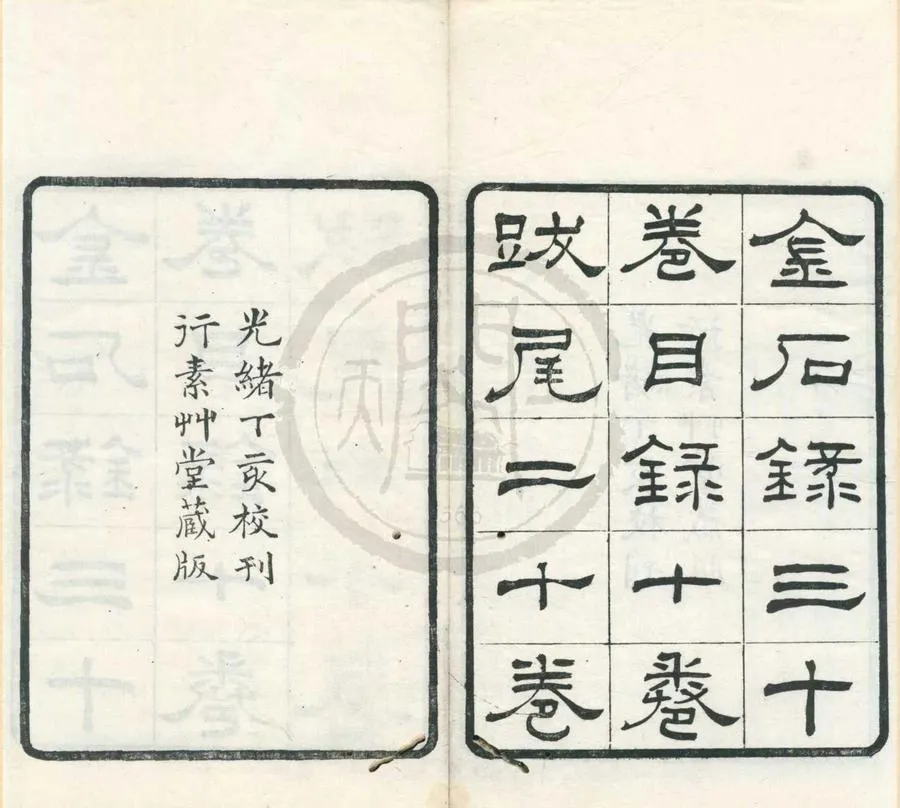 金石錄三十
卷目錄十卷
跋尾二十卷
光緒丁亥校刊
行素艸堂藏版